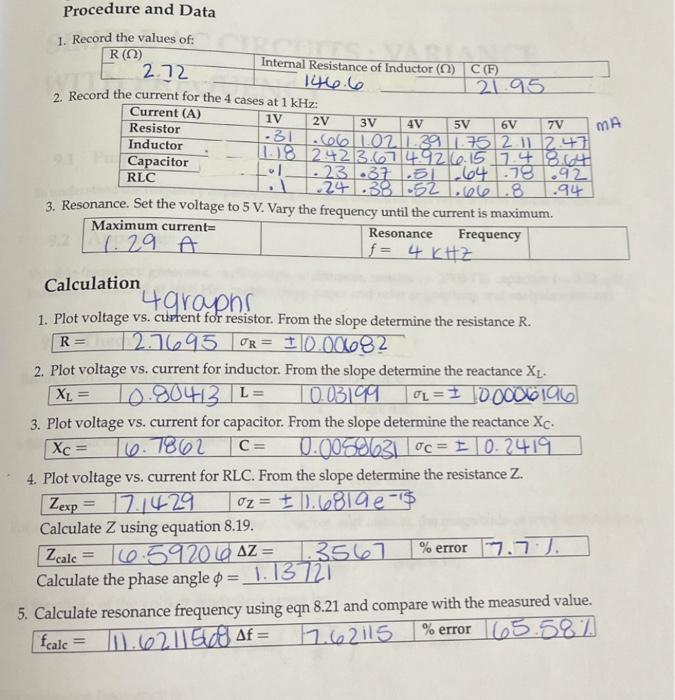 Procedure and Data
1. Record the values of:
R (Ω) Internal Resistance of Inductor (Ω) C (F)
2.72 146.6 21.95
2. Record the current for the 4 cases at 1 kHz:
Current (A) 1V 2V 3V 4V 5V 6V 7V mA
Resistor .31 .66 1.02 1.39 1.75 2.11 2.47
Inductor 1.18 2.42 3.67 4.92 6.15 7.4 8.64
Capacitor .1 .23 .37 .51 .64 .78 .92
RLC .1 .24 .38 .52 .66 .8 .94
3. Resonance. Set the voltage to 5 V. Vary the frequency until the current is maximum.
Maximum current= Resonance Frequency
1.29 A f = 4 kHz
Calculation
4 graphs
1. Plot voltage vs. current for resistor. From the slope determine the resistance R.
R = 2.7695 σR = ± 0.00682
2. Plot voltage vs. current for inductor. From the slope determine the reactance XL.
XL = 0.80413 L = 0.03199 σL = ± 0.0006196
3. Plot voltage vs. current for capacitor. From the slope determine the reactance XC.
XC = 6.7862 C = 0.0058631 σC = ± 0.2419
4. Plot voltage vs. current for RLC. From the slope determine the resistance Z.
Zexp = 7.1429 σZ = ± 1.6819e-15
Calculate Z using equation 8.19.
Zcalc = 6.59206 ΔZ = .3567 % error 7.7%
Calculate the phase angle ϕ = 1.13721
5. Calculate resonance frequency using eqn 8.21 and compare with the measured value.
fcalc = 11.6211568 Δf = 7.62115 % error 65.58%